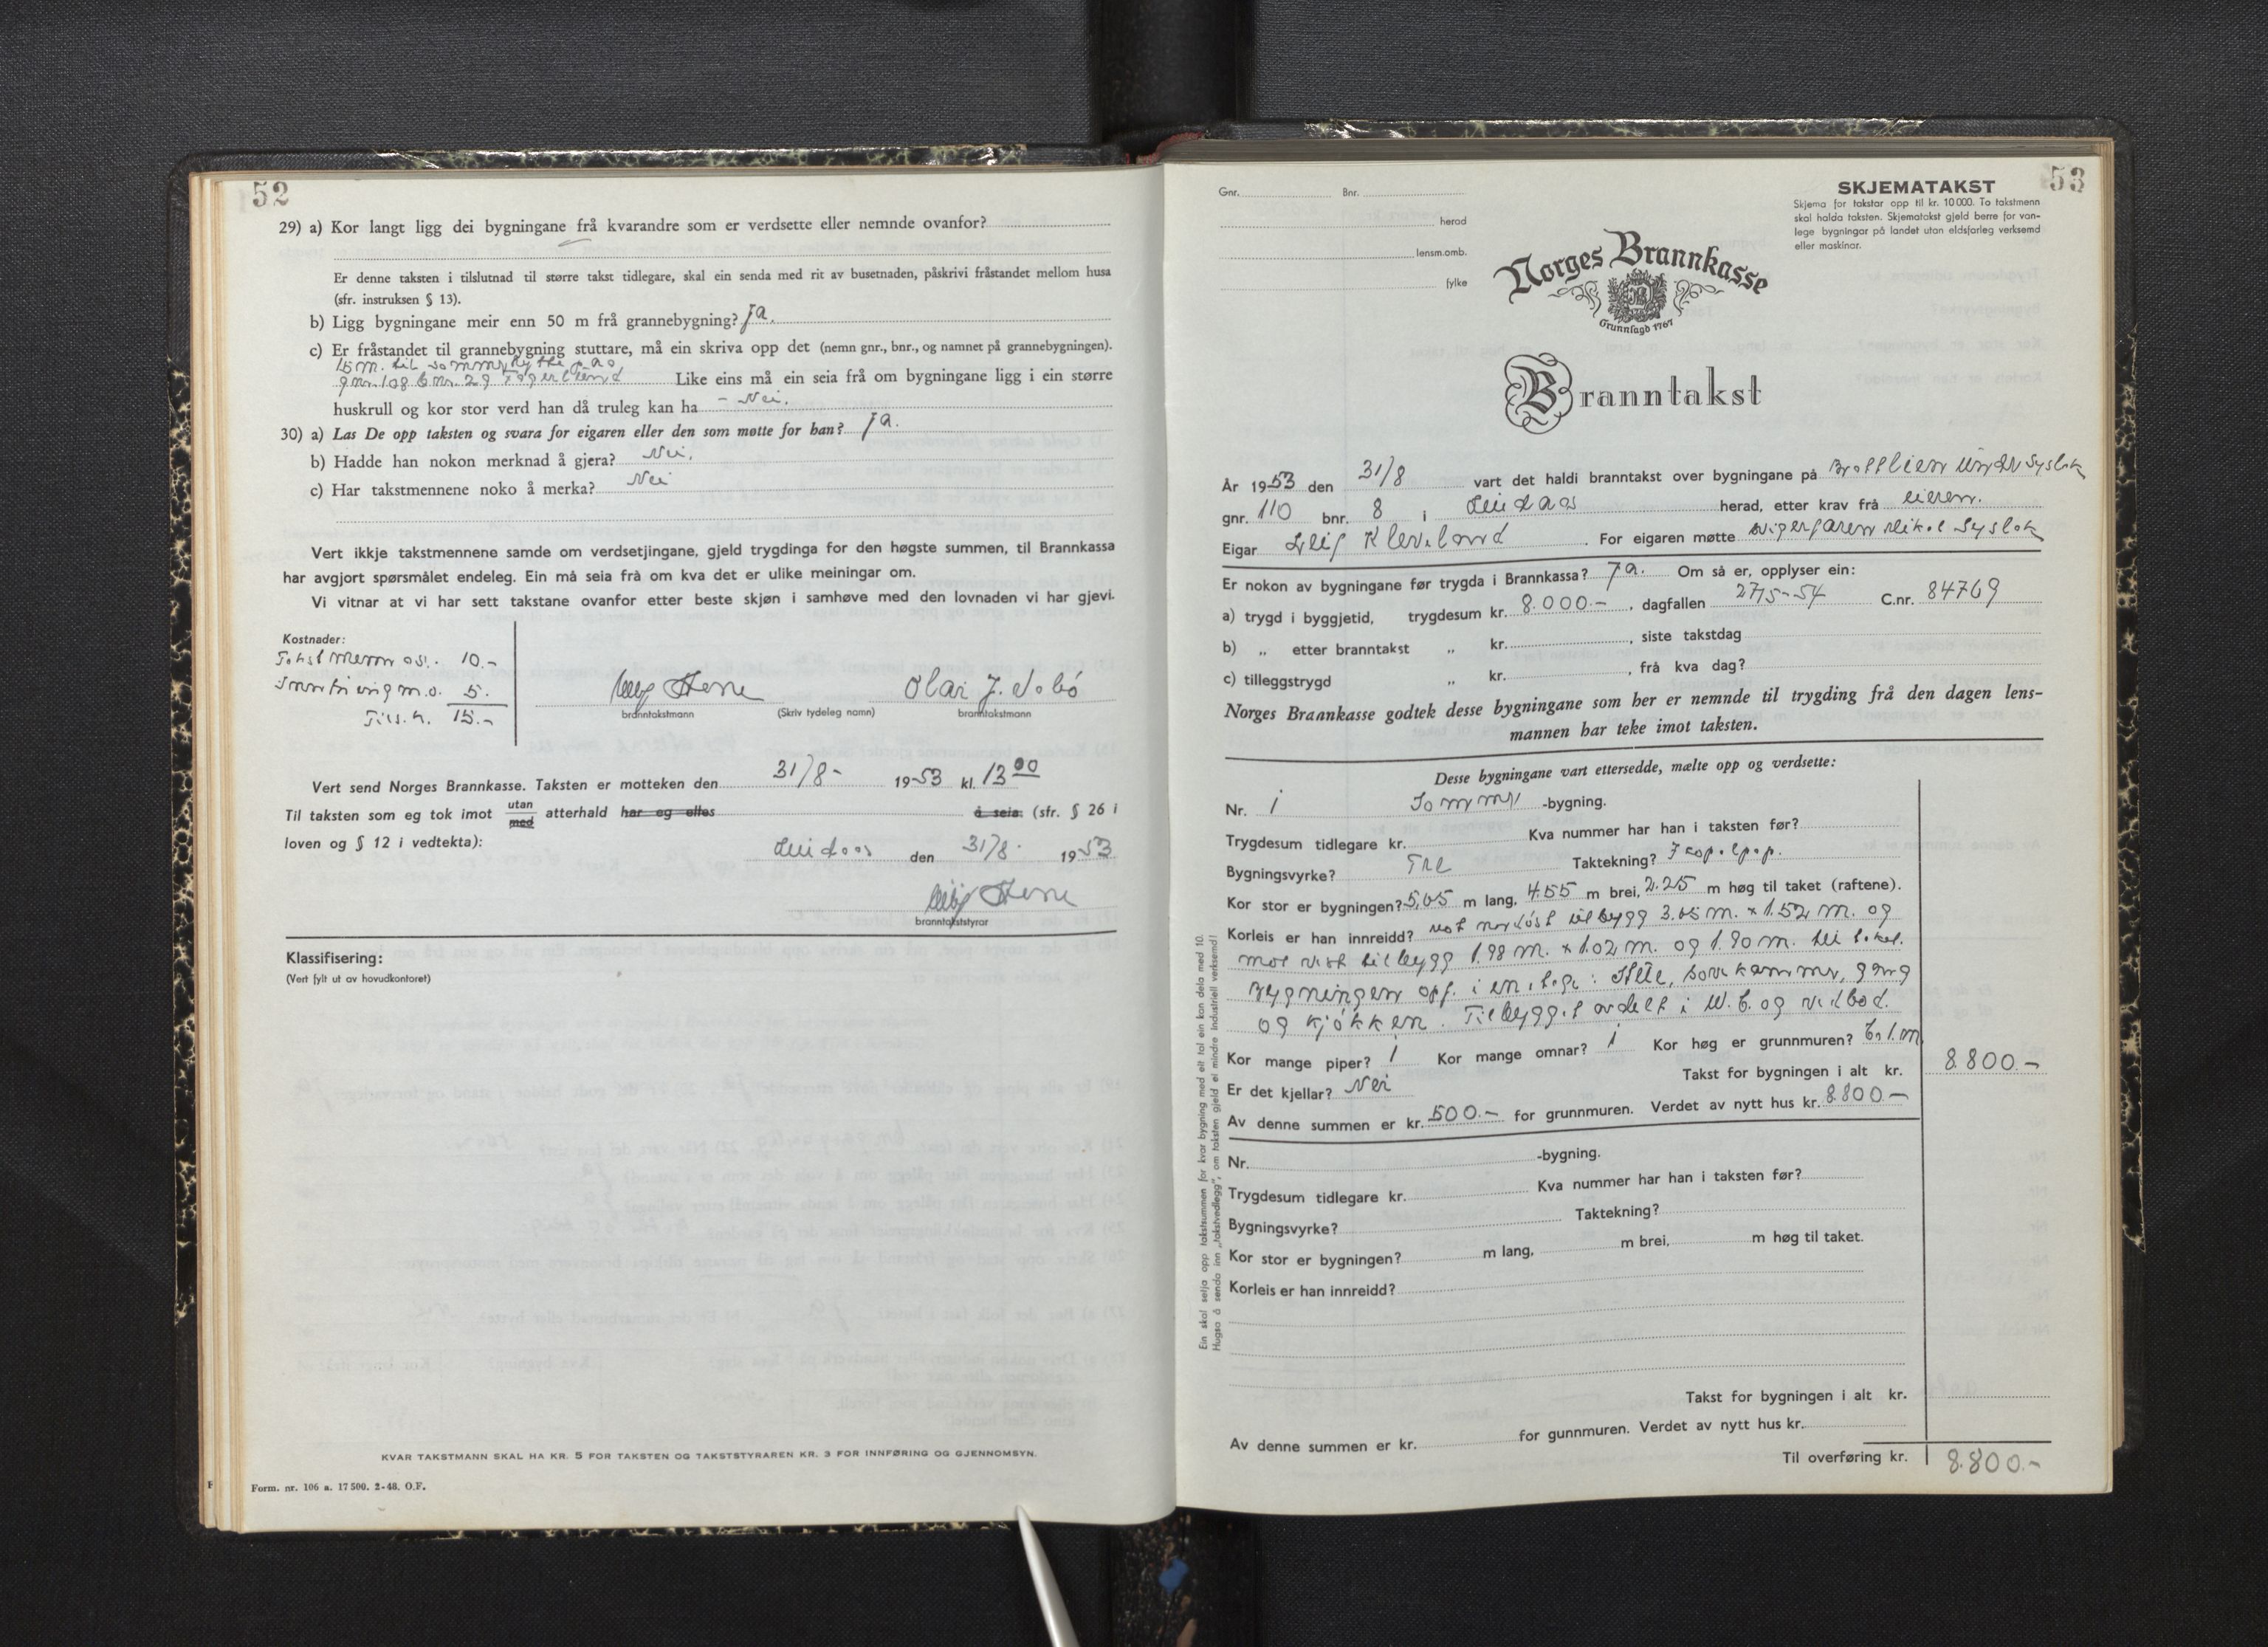 52
29) a) Kor langt ligg dei bygningane frå kvarandre som er verdsette eller nemnde ovanfor?
Er denne taksten i tilslutnad til større takst tidlegare, skal ein senda med rit av busetnaden, påskrivi fråstandet mellom husa
(sfr. instruksen § 13).
b) Ligg bygningane meir enn 50 m frå grannebygning? Ja.
c) Er fråstandet til grannebygning stuttare, må ein skriva opp det (nemn gnr., bnr., og namnet på grannebygningen).
15 m. til sommerhytte på
gnr. 108 bnr. 29 Like eins må ein seia frå om bygningane ligg i ein større
huskrull og kor stor verd han då truleg kan ha - Nei.
30) a) Las De opp taksten og svara for eigaren eller den som møtte for han? Ja.
b) Hadde han nokon merknad å gjera? Nei.
c) Har takstmennene noko å merka? Nei
Vert ikkje takstmennene samde om verdsetjingane, gjeld trygdinga for den høgste summen, til Brannkassa
har avgjort spørsmålet endeleg. Ein må seia frå om kva det er ulike meiningar om.
Vi vitnar at vi har sett takstane ovanfor etter beste skjøn i samhøve med den lovnaden vi har gjevi.
Kostnader:
10.-
5.
15.-
Olai J.
branntakstmann (Skriv tydeleg namn) branntakstmann
Vert send Norges Brannkasse. Taksten er motteken den 31/8- 1953 kl. 13 00
Til taksten som eg tok imot utan med atterhald har eg elles å seia (sfr. § 26 i
loven og § 12 i vedtekta):
Lindaas den 31/8. 1953
branntakststyrar
Klassifisering:
(Vert fylt ut av hovudkontoret)
KVAR TAKSTMANN SKAL HA KR. 5 FOR TAKSTEN OG TAKSTSTYRAREN KR. 3 FOR INNFØRING OG GJENNOMSYN.
Form. nr. 106 a. 17 500. 2-48. O.F.
53
SKJEMATAKST
Skjema for takstar opp til kr. 10 000. To takstmenn
skal halda taksten. Skjematakst gjeld berre for van-
lege bygningar på landet utan eldsfarleg verksemd
eller maskinar.
Gnr. Bnr.
herad
lensm.omb.
fylke
Norges Brannkasse
Grunnlagd 1767
Branntakst
År 1953 den 31/8 vart det haldi branntakst over bygningane på Brattlien under Syslak
gnr. 110 bnr. 8 i Lindaas herad, etter krav frå eieren.
Eigar Leif Kleveland. For eigaren møtte svigerfaren Mikal Syslak
Er nokon av bygningane før trygda i Brannkassa? Ja. Om så er, opplyser ein:
a) trygd i byggjetid, trygdesum kr. 8.000.-, dagfallen 27/5-54 C.nr. 84769
b) „ etter branntakst „ kr. , siste takstdag
c) tilleggstrygd „ kr. , frå kva dag?
Norges Brannkasse godtek desse bygningane som her er nemnde til trygding frå den dagen lens-
mannen har teke imot taksten.
Desse bygningane vart ettersedde, mælte opp og verdsette:
Nr. 1 Sommer -bygning.
Trygdesum tidlegare kr. Kva nummer har han i taksten før?
Bygningsvyrke? Tre Taktekning?
Kor stor er bygningen? 5,65 m lang, 4.55 m brei, 2.25 m høg til taket (raftene).
Korleis er han innreidd? mot nordøst tilbygg 3.65 m. x 1.52 m. og
mot vest tilbygg 1.98 m. x 1.02 m. og 1.90 m. til taket.
Bygningen opf. i en etg.: Stue, sovekammer, gang
og kjøkken. Tilbygget avdelt i W.C. og vedbod.
Kor mange piper? 1 Kor mange omnar? 1 Kor høg er grunnmuren? Ca 1. m
Er det kjellar? Nei Takst for bygningen i alt kr. 8.800.-
Av denne summen er kr. 500.- for grunnmuren. Verdet av nytt hus kr. 8.800.-
Nr. -bygning.
Trygdesum tidlegare kr. Kva nummer har han i taksten før?
Bygningsvyrke? Taktekning?
Kor stor er bygningen? m lang, m brei, m høg til taket.
Korleis er han innreidd?
Takst for bygningen i alt kr.
Av denne summen er kr. for gunnmuren. Verdet av nytt hus kr.
Til overføring kr. 8.800.-
Ein skal seija opp takstsummen for kvar bygning med eit tal ein kan dela med 10.
Hugso å senda inn „takstvedlegg", om taksten gjeld ei mindre industriell verksemd!